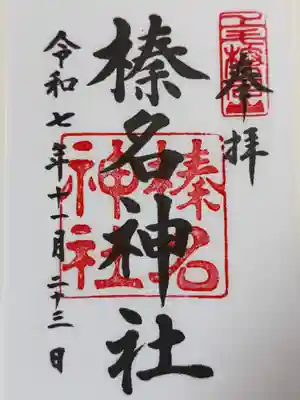 奉拝
榛名神社
榛名神社
令和七年十一月二十三日